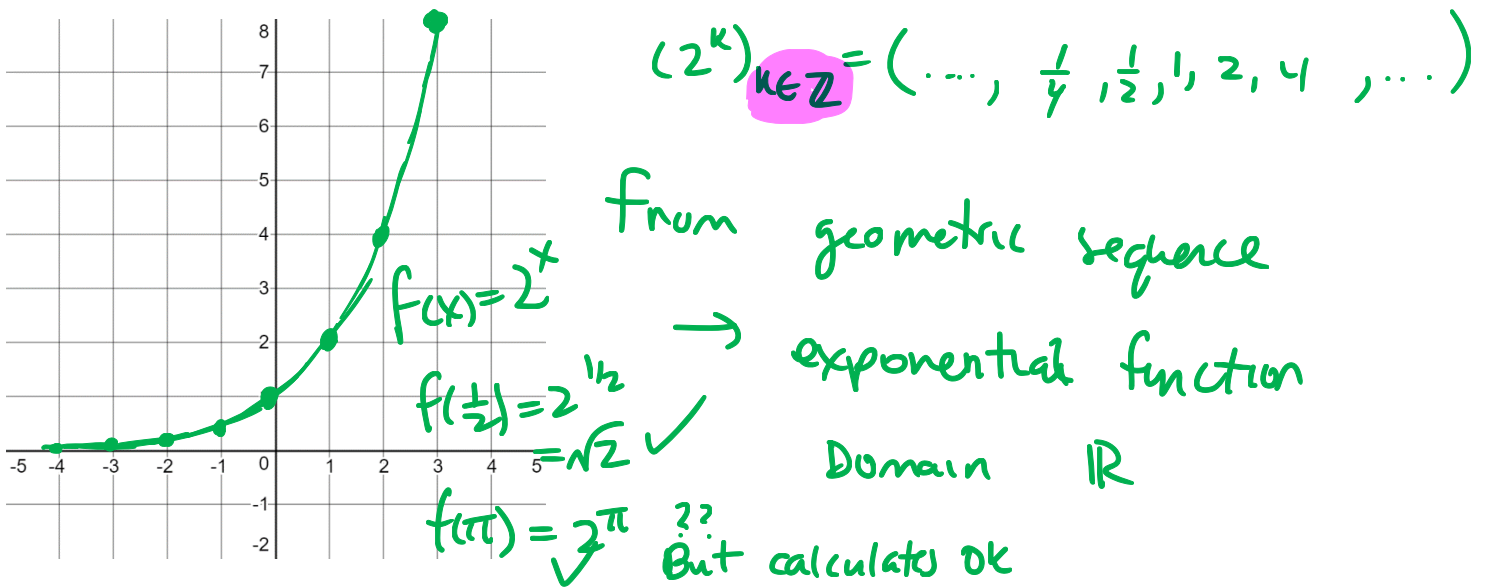 8
7
6
5
4
3
2
-1
-2
-5 -4 -3 -2 -1 0 1 2 3 4 5
(2^k)_{k∈ℤ} = (...., 1/4, 1/2, 1, 2, 4, ....)
From geometric sequence
→ exponential function
Domain ℝ
f(x) = 2^x
f(1/2) = 2^{1/2}
= √2 ✓
f(π) = 2^π ??
✓ But calculates ok